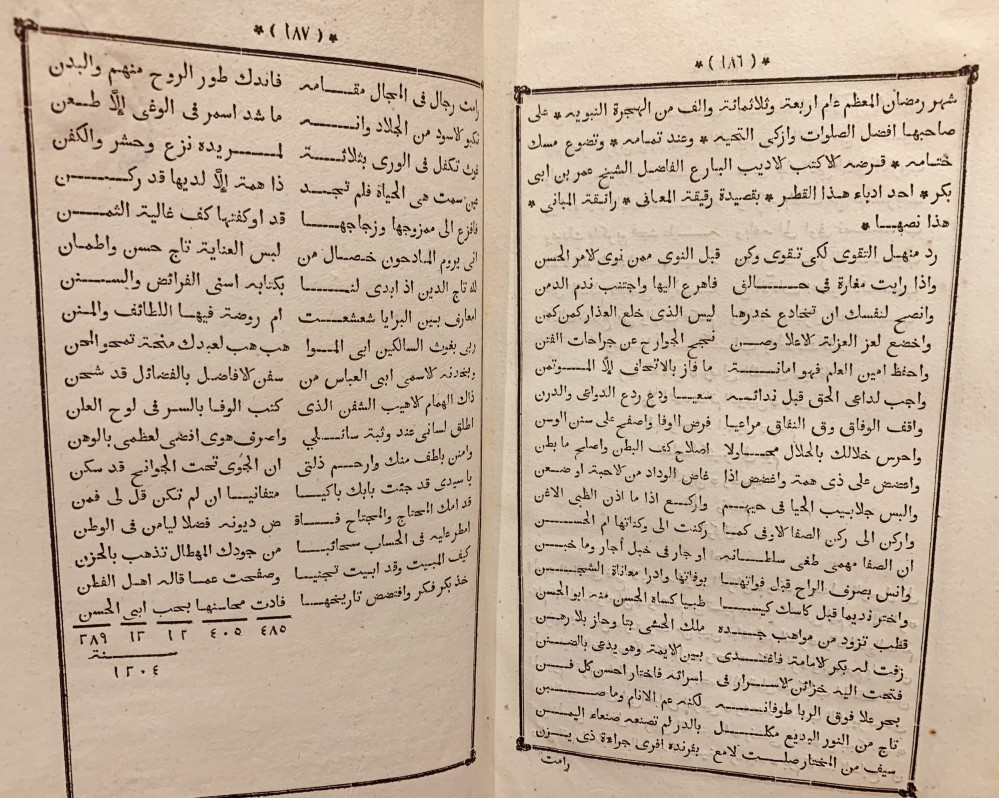 * ( ١٨٦ ) *
شهر رمضان المعظم عام اربعة وثلاثمائة والف من الهجرة النبويه * على
صاحبها افضل الصلوات وازكى التحيه * وعند تمامه * وتضوع مسك
ختامه * قرضه الاكتب الاديب البارع الفاضل الشيخ عمر بن ابى
بكر * احد ادباء هذا القطر * بقصيدة رقيقة المعانى * رائقة المبانى *
هذا نصهـا *
رد منهل التقوى لكى تقوى وكن قبل النوى ممن نوى لامر الحسن
واذا رايت مغارة فى حـالق فاهرع اليها واجتنب ندم الدمن
وانصح لنفسك ان تخادع خدرها ليس الذى خلع العذار كمن كمن
واخضع لعز العزلة الاعلا وصـن نجح الجوارح عن جراحات الفتن
واحفظ امين العلم فهو امانـة ما فاز بالاتحاف الّا المـوتمن
واجب لداعى الحق قبل ندائـه سعيـا ودع ردع الدواعى والدرن
واقف الوفاق وق النفاق مراعيا فرض الوفا واصفى على سنن الوسن
واحرس خلالك بالحلال محـاولا اصلاح كف البطن واصلى ما بطن
واغضض على ذى همة واغضض اذا غاض الوداد من الاحبة او ضـعن
والبس جلابيب الحيا فى حيهـم واركـع اذا ما اذن الظبى الاغن
واركن الى ركن الصفا الاوفى كمـا ركنت الى وكناتها ام الحسـن
ان الصفا مهمى طغى سلطـانه او جار فى خبل أجار وما خبـن
وانس بصرف الراح قبل فواتهـا بوفاتها وادرا معاناة الشجـن
واختر نديما قبل كاسك كيسـا ظبيا كساه الحسن منه ابو الحسن
قطب تزود من مواهب جـده ملك الحشى بتا وحاز بلا رهـن
زفت له بكر الامامة فاغتـدى بين الايمة وهو يدعى بالضـن
فتحت اليه خزائن الاسـرار فى اسرائه فاختار احسن كل فـن
بحر علا فوق الربا طوفانـه لكنه عم الانام وما صـبن
تاج من النور البديع مكلـل بالدر لم تصنعه صنعاء اليمـن
سيف من المختار صلـت لامع بفرنده افرى جراءة ذى يـزن
رامت
* ( ١٨٧ ) *
رامت رجال فى المجال مقـامه فاندك طور الروح منهم والبدن
تكبو الاسود من الجلاد وانـه ما شد اسمر فى الوغى الّا طـعن
غوث تكفل فى الورى بثلاثـة لمـريده نزع وحشر والكفن
سمت هى الحياة فلم تجـد ذا همة الّا لديها قد ركـن
فافزع الى ممزوجها وزجاجهـا قد اوكفتها كف غالية الثمـن
انى يروم المادحون خصـال من لبس العناية تاج حسن واطمان
لله تاج الدين اذ ابدى لنـا بكتابه اسنى الفرائض والسـنن
امعارف بين البرايا شعشعـت ام روضة فيهـا اللطائف والمنن
ربى بغوث السالكين ابى المـوا هب هب لعبدك منحة تمحو المحن
وبخدنه الاسمى ابى العباس من سفن الافاضـل بالفضائل قد شحن
ذاك الهمام الاهيب الشفن الذى كتب الوفا بالسـر فى لوح العلن
اطلق لسانى عند وثبة سائـلي واصرف هوى افضى لعظمى بالوهن
وامنن بلطف منك وارحـم ذلتى ان الجوى تحت الجوانح قد سكن
يا سيدى قد جئت بابك باكيـا متفانيـا ان لم تكن قل لى فمن
قد امك المحتاج والمجتاح فـاة ض ديونه فضلا ليامن فى الوطن
امطر عليه فى الحساب سحائبـا من جودك المهطال تذهب بالحزن
كيف المبيت وقد ابيت تجنيـا وصفحت عمـا قاله اهـل الفطن
خذ بكر فكر وافتضض تاريخهـا فادت محـاسنها بحب ابى الحسن
٤٨٥ ٤٠٥ ١٢ ١٣ ٢٨٩
سـنة
١٢٠٤